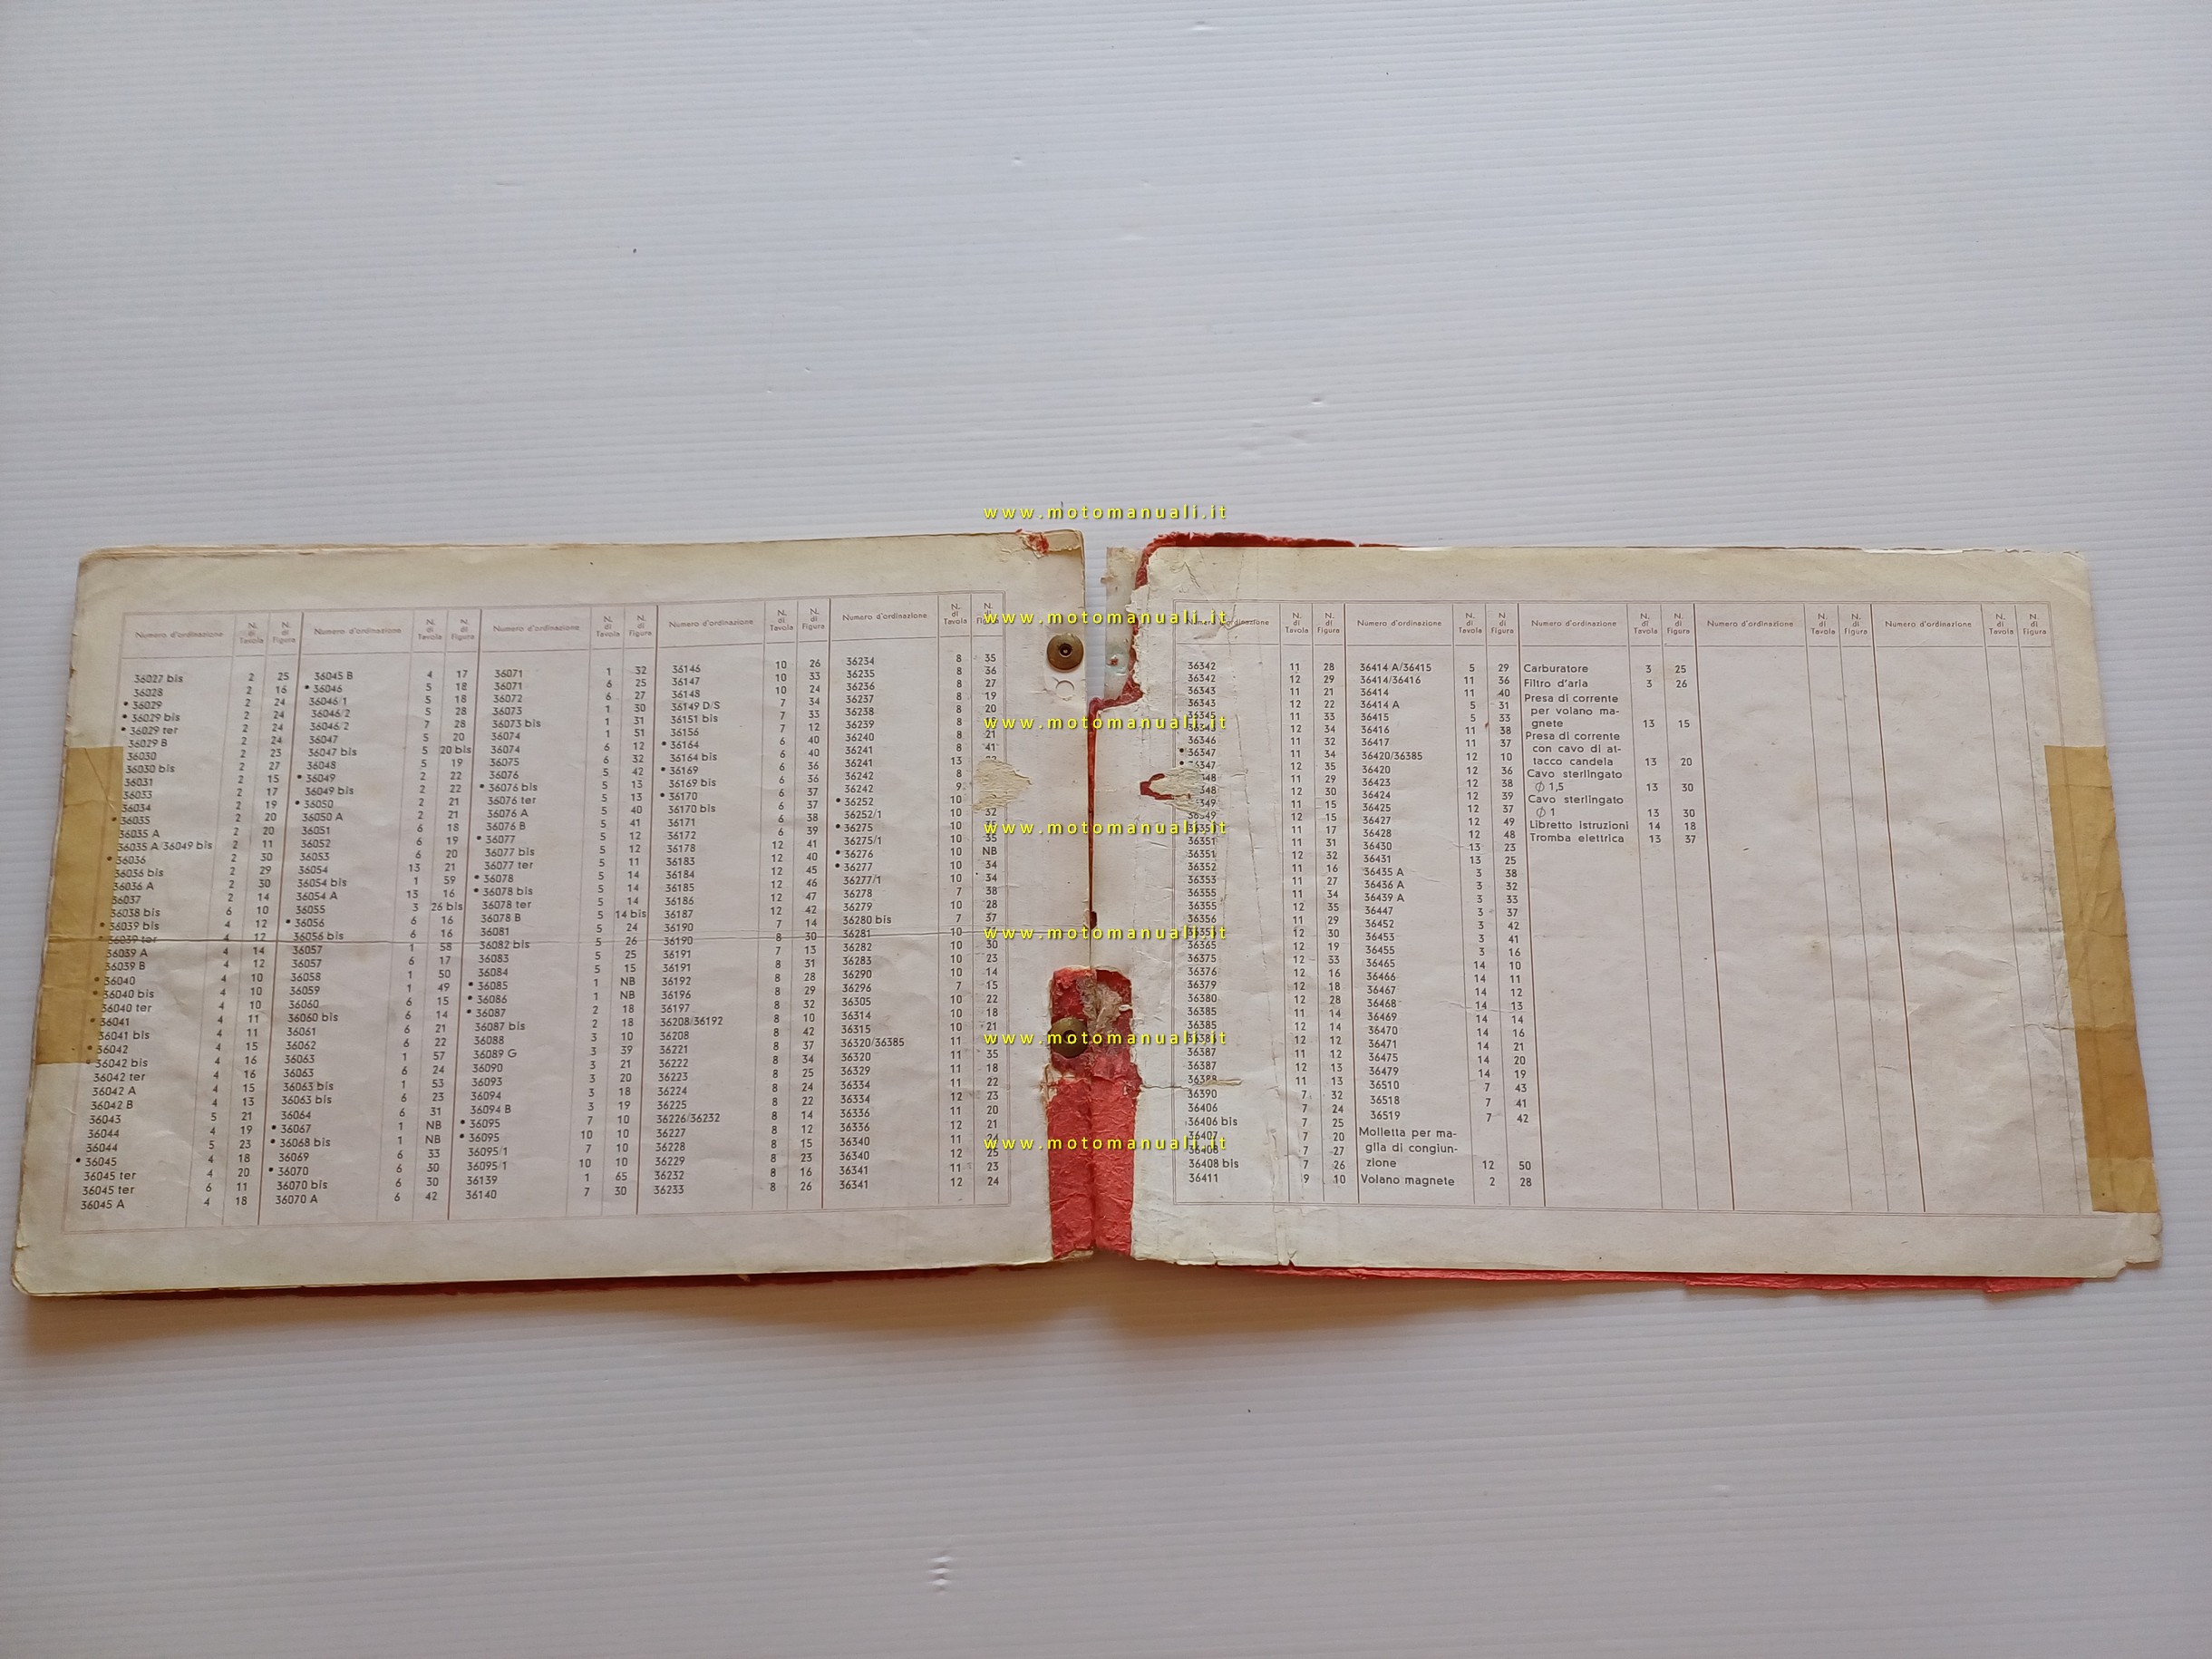 www.motomanuali.it
Numero d'ordinazione N. di Tavola N. di Figura
36027 bis 2 25
36028 2 16
• 36029 2 24
• 36029 bis 2 24
• 36029 ter 2 24
36029 B 2 24
36030 2 23
36030 bis 2 27
36031 2 15
36033 2 17
36034 2 19
• 36035 2 20
36035 A 2 20
36035 A/36049 bis 2 11
• 36036 2 30
36036 bis 2 29
36036 A 2 30
36037 2 14
36038 bis 6 10
• 36039 bis 4 12
• 36039 ter 4 12
36039 A 4 14
36039 B 4 12
• 36040 4 10
• 36040 bis 4 10
36040 ter 4 10
• 36041 4 11
36041 bis 4 11
• 36042 4 15
• 36042 bis 4 16
36042 ter 4 16
36042 A 4 15
36042 B 4 13
36043 5 21
36044 4 19
36044 5 23
• 36045 4 18
36045 ter 4 20
36045 ter 6 11
36045 A 4 18
Numero d'ordinazione N. di Tavola N. di Figura
36045 B 4 17
• 36046 5 18
36046/1 5 18
36046/2 5 28
36046/2 7 28
36047 5 20
36047 bis 5 20 bis
36048 5 19
• 36049 2 22
36049 bis 2 22
• 36050 2 21
36050 A 2 21
36051 6 18
36052 6 19
36053 6 20
36054 13 21
36054 bis 1 59
36054 A 13 16
36055 3 26 bis
• 36056 6 16
36056 bis 6 16
36057 1 58
36057 6 17
36058 1 50
36059 1 49
36060 6 15
36060 bis 6 14
36061 6 21
36062 6 22
36063 1 57
36063 6 24
36063 bis 1 53
36063 bis 6 23
36064 6 31
• 36067 1 NB
• 36068 bis 1 NB
36069 6 33
• 36070 6 30
36070 bis 6 30
36070 A 6 42
Numero d'ordinazione N. di Tavola N. di Figura
36071 1 32
36071 6 25
36072 6 27
36073 1 30
36073 bis 1 31
36074 1 51
36074 6 12
36075 6 32
36076 5 42
• 36076 bis 5 13
36076 ter 5 13
36076 A 5 40
36076 B 5 41
• 36077 5 12
36077 bis 5 12
36077 ter 5 11
• 36078 5 14
• 36078 bis 5 14
36078 ter 5 14
36078 B 5 14 bis
36081 5 24
36082 bis 5 26
36083 5 25
36084 5 15
• 36085 1 NB
• 36086 1 NB
• 36087 2 18
36087 bis 2 18
36088 3 10
36089 G 3 39
36090 3 21
36093 3 20
36094 3 18
36094 B 3 19
• 36095 7 10
• 36095 10 10
36095/1 7 10
36095/1 10 10
36139 1 65
36140 7 30
Numero d'ordinazione N. di Tavola N. di Figura
36146 10 26
36147 10 33
36148 10 24
36149 D/S 7 34
36151 bis 7 33
36156 7 12
• 36164 6 40
36164 bis 6 40
• 36169 6 36
36169 bis 6 36
• 36170 6 37
36170 bis 6 37
36171 6 38
36172 6 39
36178 12 41
36183 12 40
36184 12 45
36185 12 46
36186 12 47
36187 12 42
36190 7 14
36190 8 30
36191 7 13
36191 8 31
36192 8 28
36196 8 29
36197 8 32
36208/36192 8 10
36208 8 42
36221 8 37
36222 8 34
36223 8 25
36224 8 24
36225 8 22
36226/36232 8 14
36227 8 12
36228 8 15
36229 8 23
36232 8 16
36233 8 26
Numero d'ordinazione N. di Tavola N.
36234 8 35
36235 8 36
36236 8 27
36237 8 19
36238 8 20
36239 8
36240 8 21
36241 8 41
36241 13
36242 8
36242 9
• 36252 10
36252/1 10 32
• 36275 10
36275/1 10 35
• 36276 10 NB
• 36277 10 34
36277/1 10 34
36278 7 38
36279 10 28
36280 bis 7 37
36281 10
36282 10 30
36283 10 23
36290 10 14
36296 7 15
36305 10 22
36314 10 18
36315 10 21
36320/36385 11
36320 11 35
36329 11 18
36334 11 22
36334 12 23
36336 11 20
36336 12 21
36340 11
36340 12 25
36341 11 23
36341 12 24
www.motomanuali.it
www.motomanuali.it
www.motomanuali.it
www.motomanuali.it
www.motomanuali.it
www.motomanuali.it
N. di Tavola N. di Figura
36342 11 28
36342 12 29
36343 11 21
36343 12 22
36345 11 33
12 34
36346 11 32
• 36347 11 34
• 36347 12 35
348 11 29
348 12 30
349 11 15
36349 12 15
11 17
36351 11 31
36351 12 32
36352 11 16
36353 11 27
36355 11 34
36355 12 35
36356 11 29
12 30
36365 12 19
36375 12 33
36376 12 16
36379 12 18
36380 12 28
36385 11 14
36385 12 14
12 12
36387 11 12
36387 12 13
36388 11 13
36390 7 32
36406 7 24
36406 bis 7 25
36407 7 20
36408 7 27
36408 bis 7 26
36411 9 10
Numero d'ordinazione N. di Tavola N. di Figura
36414 A/36415 5 29
36414/36416 11 36
36414 11 40
36414 A 5 31
36415 5 33
36416 11 38
36417 11 37
36420/36385 12 10
36420 12 36
36423 12 38
36424 12 39
36425 12 37
36427 12 49
36428 12 48
36430 13 23
36431 13 25
36435 A 3 38
36436 A 3 32
36439 A 3 33
36447 3 37
36452 3 42
36453 3 41
36455 3 16
36465 14 10
36466 14 11
36467 14 12
36468 14 13
36469 14 14
36470 14 16
36471 14 21
36475 14 20
36479 14 19
36510 7 43
36518 7 41
36519 7 42
Molletta per ma-
glia di congiun-
zione 12 50
Volano magnete 2 28
Numero d'ordinazione N. di Tavola N. di Figura
Carburatore 3 25
Filtro d'aria 3 26
Presa di corrente
per volano ma-
gnete 13 15
Presa di corrente
con cavo di at-
tacco candela 13 20
Cavo sterlingato
∅ 1,5 13 30
Cavo sterlingato
∅ 1 13 30
Libretto Istruzioni 14 18
Tromba elettrica 13 37
Numero d'ordinazione N. di Tavola N. di Figura
Numero d'ordinazione N. di Tavola N. di Figura